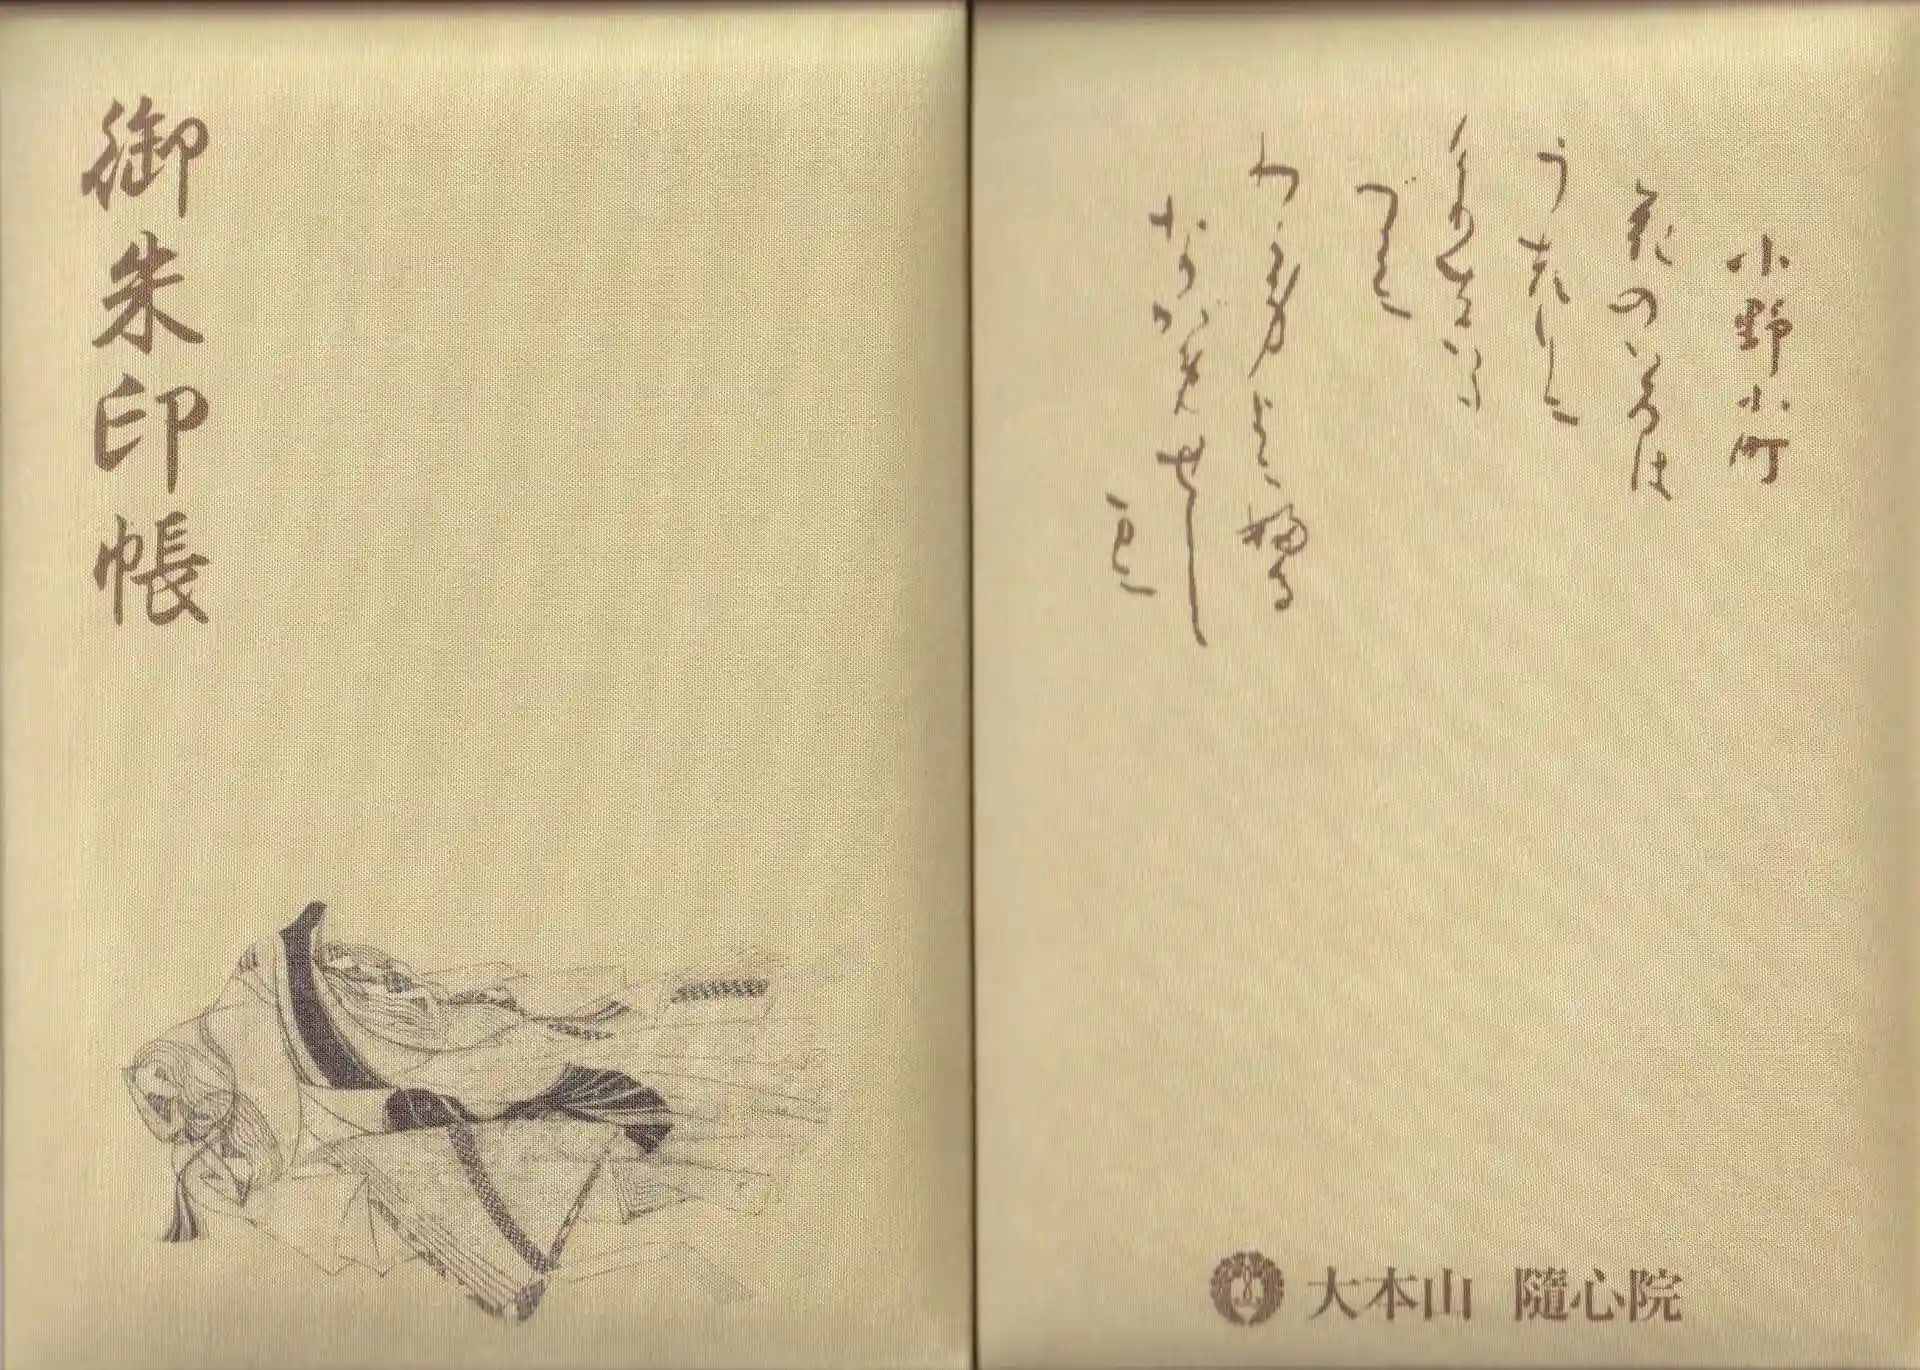 御朱印帳
小野小町
花のいろは
うつりにけ
りないたつら
に
わか身よにふる
なかめせし
まに
大本山 隨心院